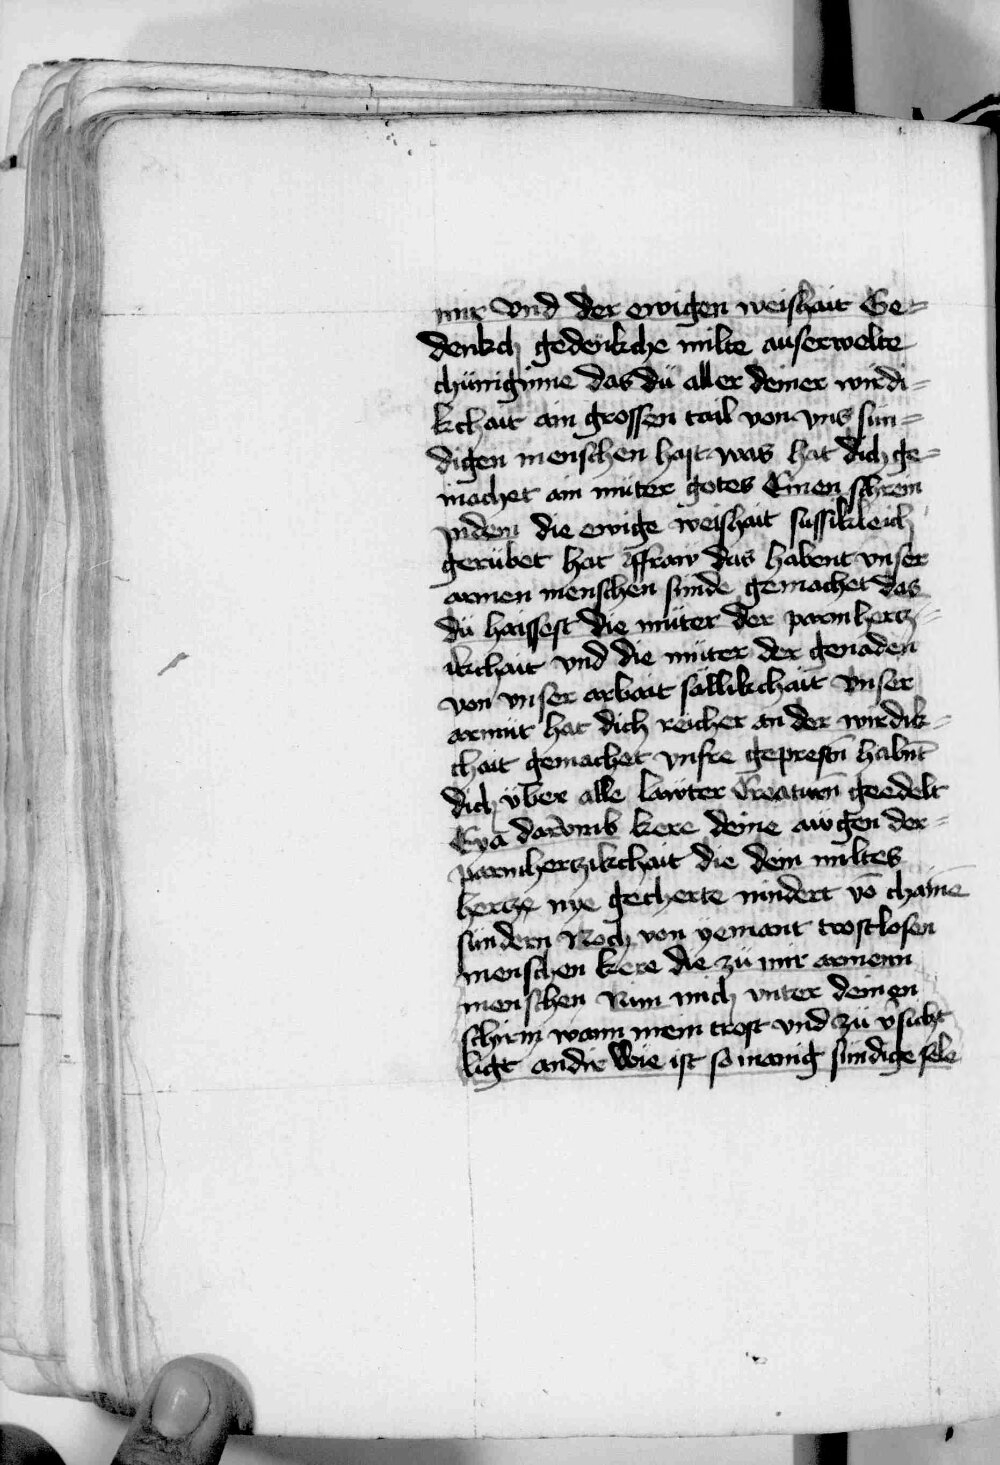 mir vnd der ewigen weishait Ge=
denkch gedenkche milte auserwelte
chünniginne das dü aller deiner wirdi=
kchait ain grossen tail von vns sun=
digen menschen hast was hat dich ge=
machet ain müter gotes Einen schrein
jndem die ewige weishait süssikleich
gerübet hat ffraw das habent vnser
armen menschen sunde gemachet das
dü haissest die müter der parmhercz=
ikchait vnd die müter der genaden
von vnser arbait sällikchait vnser
armüt hat dich reicher an der wirdik=
chait gemachet vnsre geprestn̄ habn̄t
dich über alle lawter Creaturn̄ geedelt
Eya darvmb kere deine awgen der=
parmherczikchait die dein miltes
hercze nye gecherte nindert vō chaine
sündern Noch von yemant trostlosen
menschen kere die zü mir armenn
menschen Nim mich vnter deinen
schirm wann mein trost vnd zü v̄sicht
ligt andir Wie ist so manig sundige sele